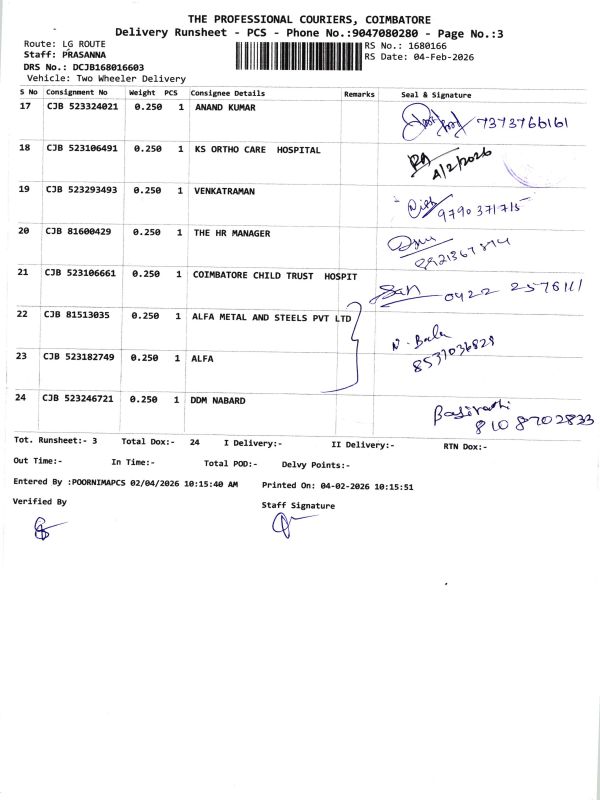 THE PROFESSIONAL COURIERS, COIMBATORE
Delivery Runsheet - PCS - Phone No.:9047080280 - Page No.:3
Route: LG ROUTE RS No.: 1680166
Staff: PRASANNA RS Date: 04-Feb-2026
DRS No.: DCJB168016603
Vehicle: Two Wheeler Delivery
S No Consignment No Weight PCS Consignee Details Remarks Seal & Signature
17 CJB 523324021 0.250 1 ANAND KUMAR 7373766161
18 CJB 523106491 0.250 1 KS ORTHO CARE HOSPITAL
4/2/2026
19 CJB 523293493 0.250 1 VENKATRAMAN
9790371715
20 CJB 81600429 0.250 1 THE HR MANAGER
21 CJB 523106661 0.250 1 COIMBATORE CHILD TRUST HOSPIT
0422 2576111
22 CJB 81513035 0.250 1 ALFA METAL AND STEELS PVT LTD
N. Bala
23 CJB 523182749 0.250 1 ALFA
8537036829
24 CJB 523246721 0.250 1 DDM NABARD
8108702833
Tot. Runsheet:- 3 Total Dox:- 24 I Delivery:- II Delivery:- RTN Dox:-
Out Time:- In Time:- Total POD:- Delvy Points:-
Entered By :POORNIMAPCS 02/04/2026 10:15:40 AM Printed On: 04-02-2026 10:15:51
Verified By Staff Signature